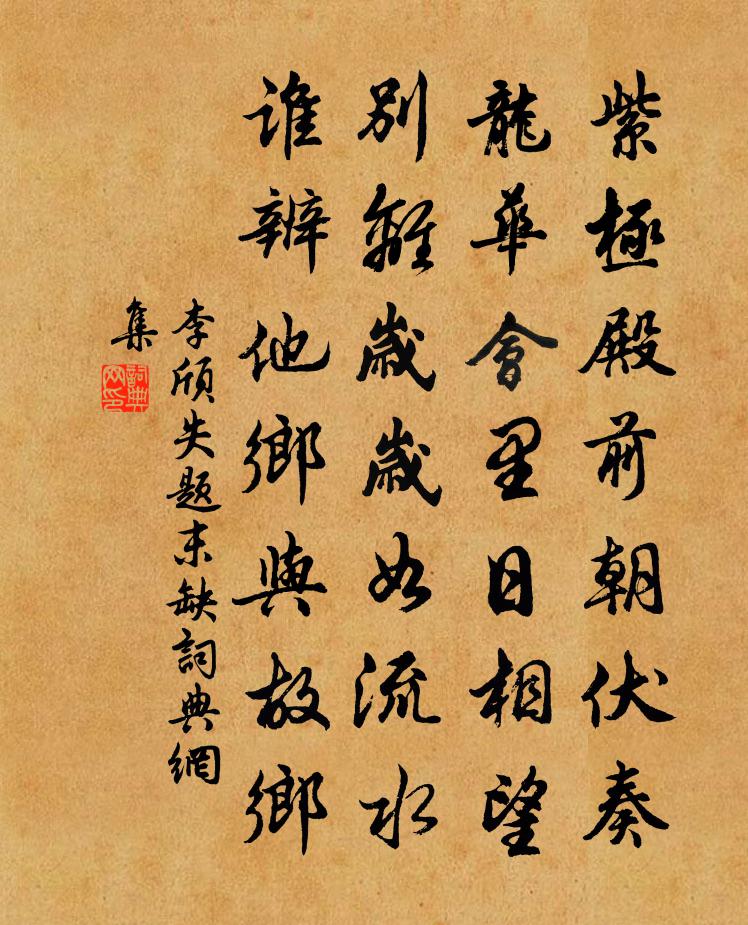 紫極殿前朝伏奏
龍華會里日相望
別離歲歲如流水
誰辨他鄉與故鄉
李頎失題末缺詞典網
集
詞典網印